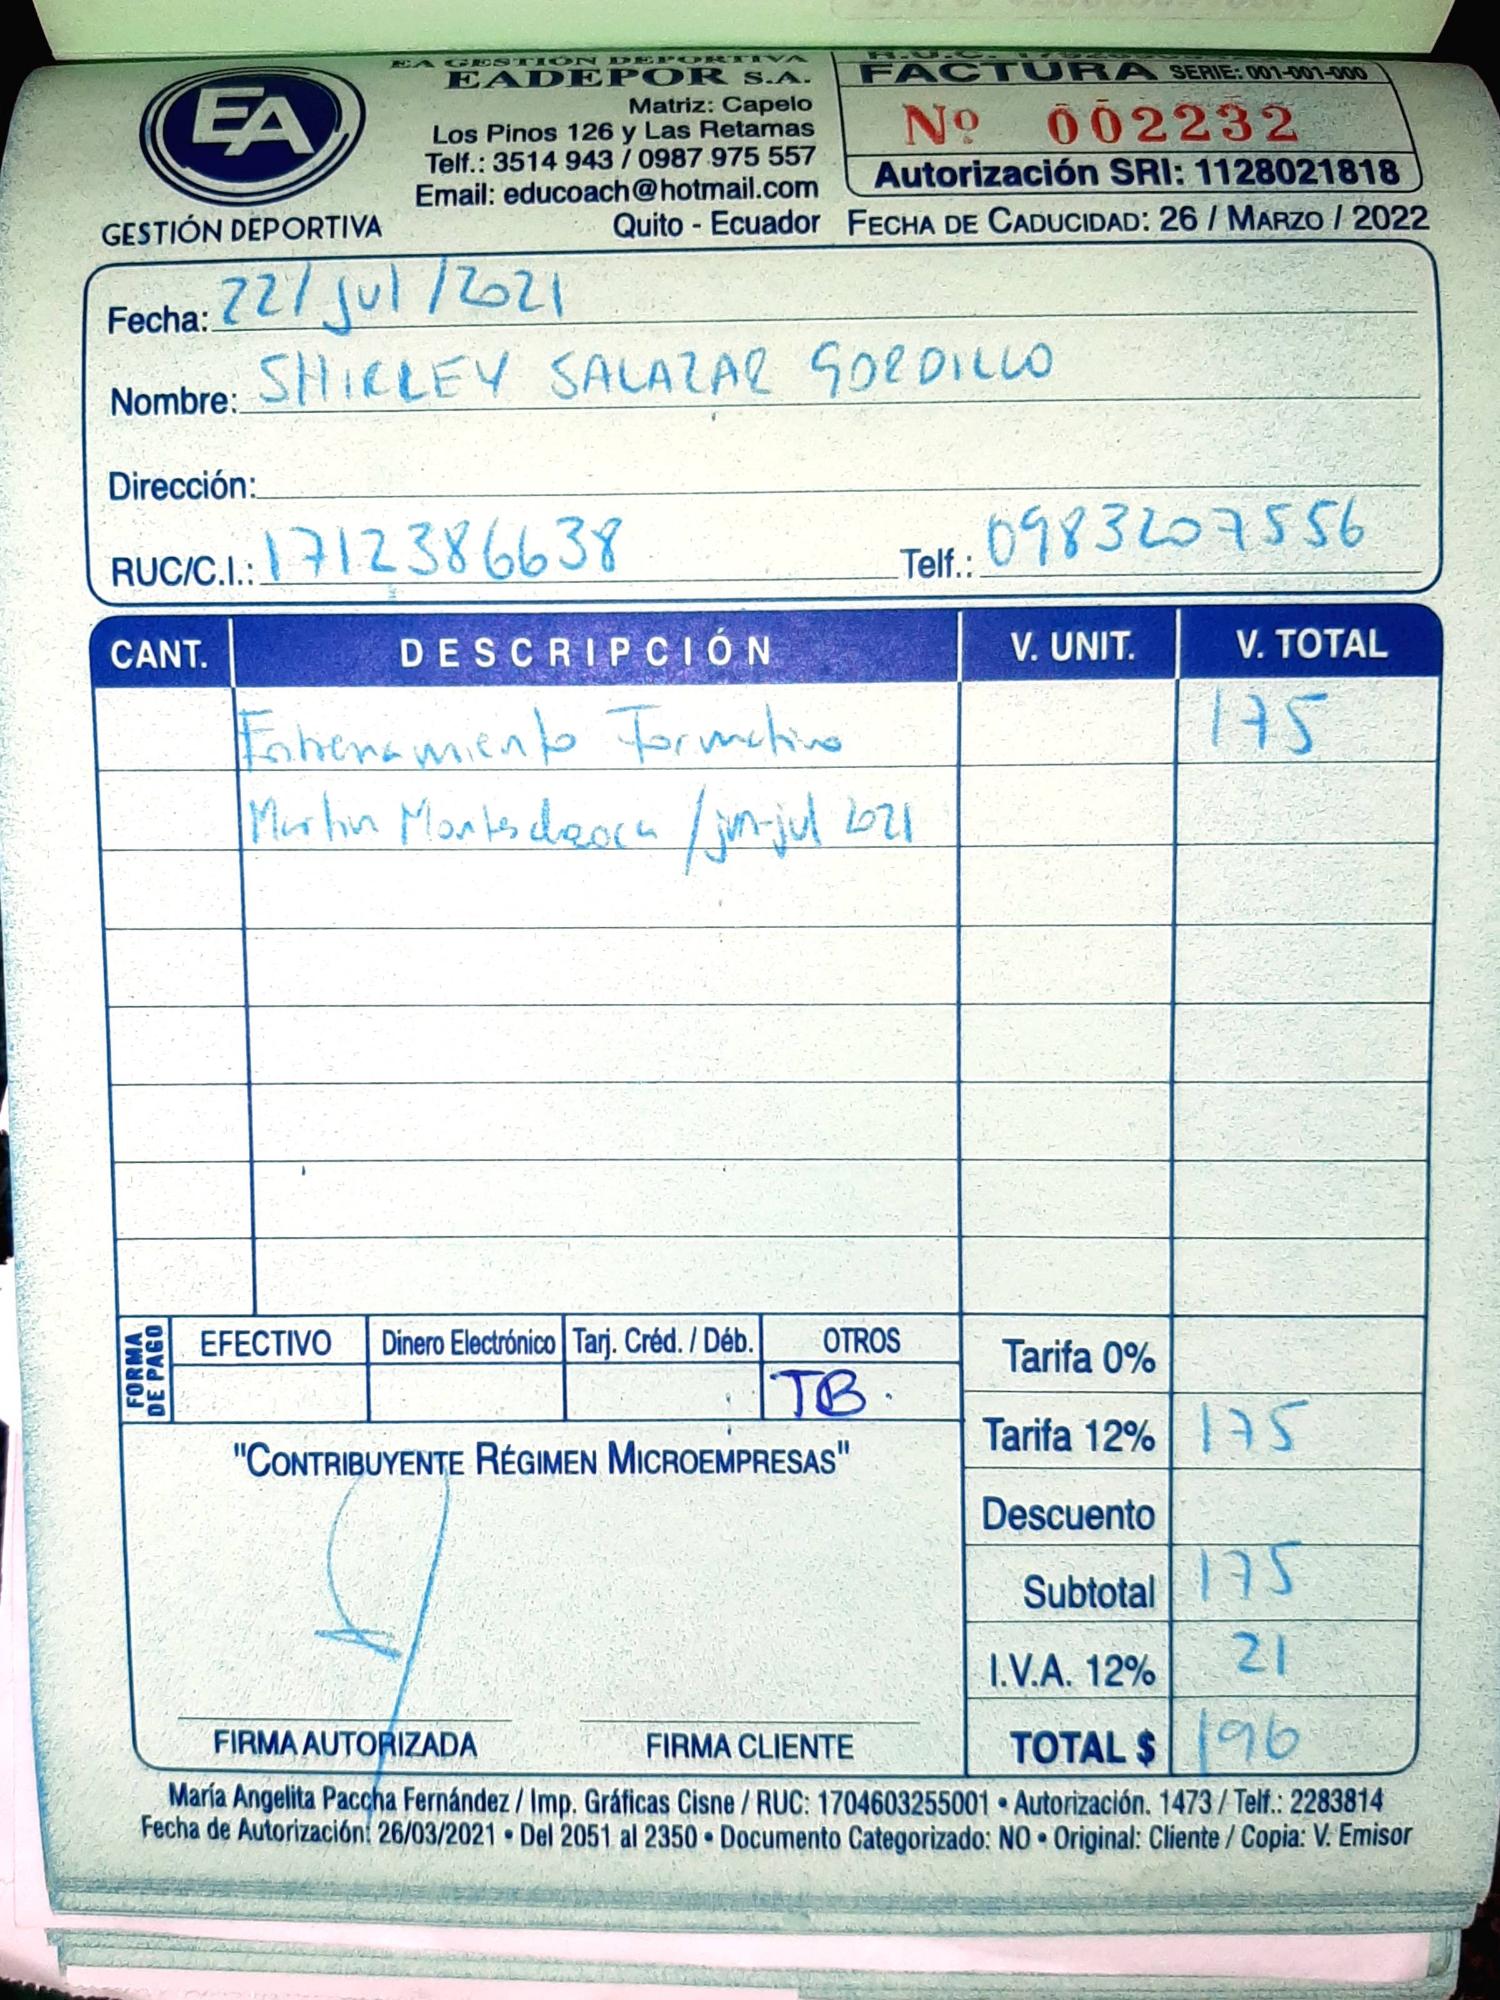 EA GESTIÓN DEPORTIVA
EADEPOR S.A.
Matriz: Capelo
Los Pinos 126 y Las Retamas
Telf.: 3514 943 / 0987 975 557
Email: educoach@hotmail.com
Quito - Ecuador
EA
GESTIÓN DEPORTIVA
R.U.C.
FACTURA SERIE: 001-001-000
Nº 002232
Autorización SRI: 1128021818
FECHA DE CADUCIDAD: 26 / MARZO / 2022
Fecha: 22/jul/2021
Nombre: SHIRLEY SALAZAR GORDILLO
Dirección:
RUC/C.I.: 1712386638 Telf.: 0983207556
CANT. DESCRIPCIÓN V. UNIT. V. TOTAL
Entrenamiento Formativo 175
Martin Montesdeoca / jun-jul 2021
FORMA DE PAGO
EFECTIVO Dinero Electrónico Tarj. Créd. / Déb. OTROS
TB.
"CONTRIBUYENTE RÉGIMEN MICROEMPRESAS"
Tarifa 0%
Tarifa 12% 175
Descuento
Subtotal 175
I.V.A. 12% 21
TOTAL $ 196
FIRMA AUTORIZADA FIRMA CLIENTE
María Angelita Paccha Fernández / Imp. Gráficas Cisne / RUC: 1704603255001 • Autorización. 1473 / Telf.: 2283814
Fecha de Autorización: 26/03/2021 • Del 2051 al 2350 • Documento Categorizado: NO • Original: Cliente / Copia: V. Emisor